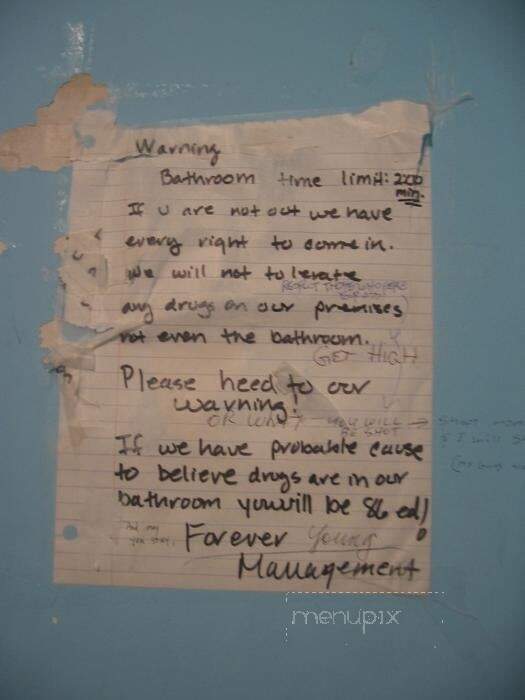 Warning
Bathroom time limit: 200 min.
If u are not out we have
every right to come in.
We will not tolerate
any drugs on our premises
not even the bathroom.
GET HIGH
Please heed to our
warning!
OR WHAT? YOU WILL BE SHOT
If we have probable cause
to believe drugs are in our
bathroom you will be 86 ed!
And may you stay, Forever Young
Management
menupix